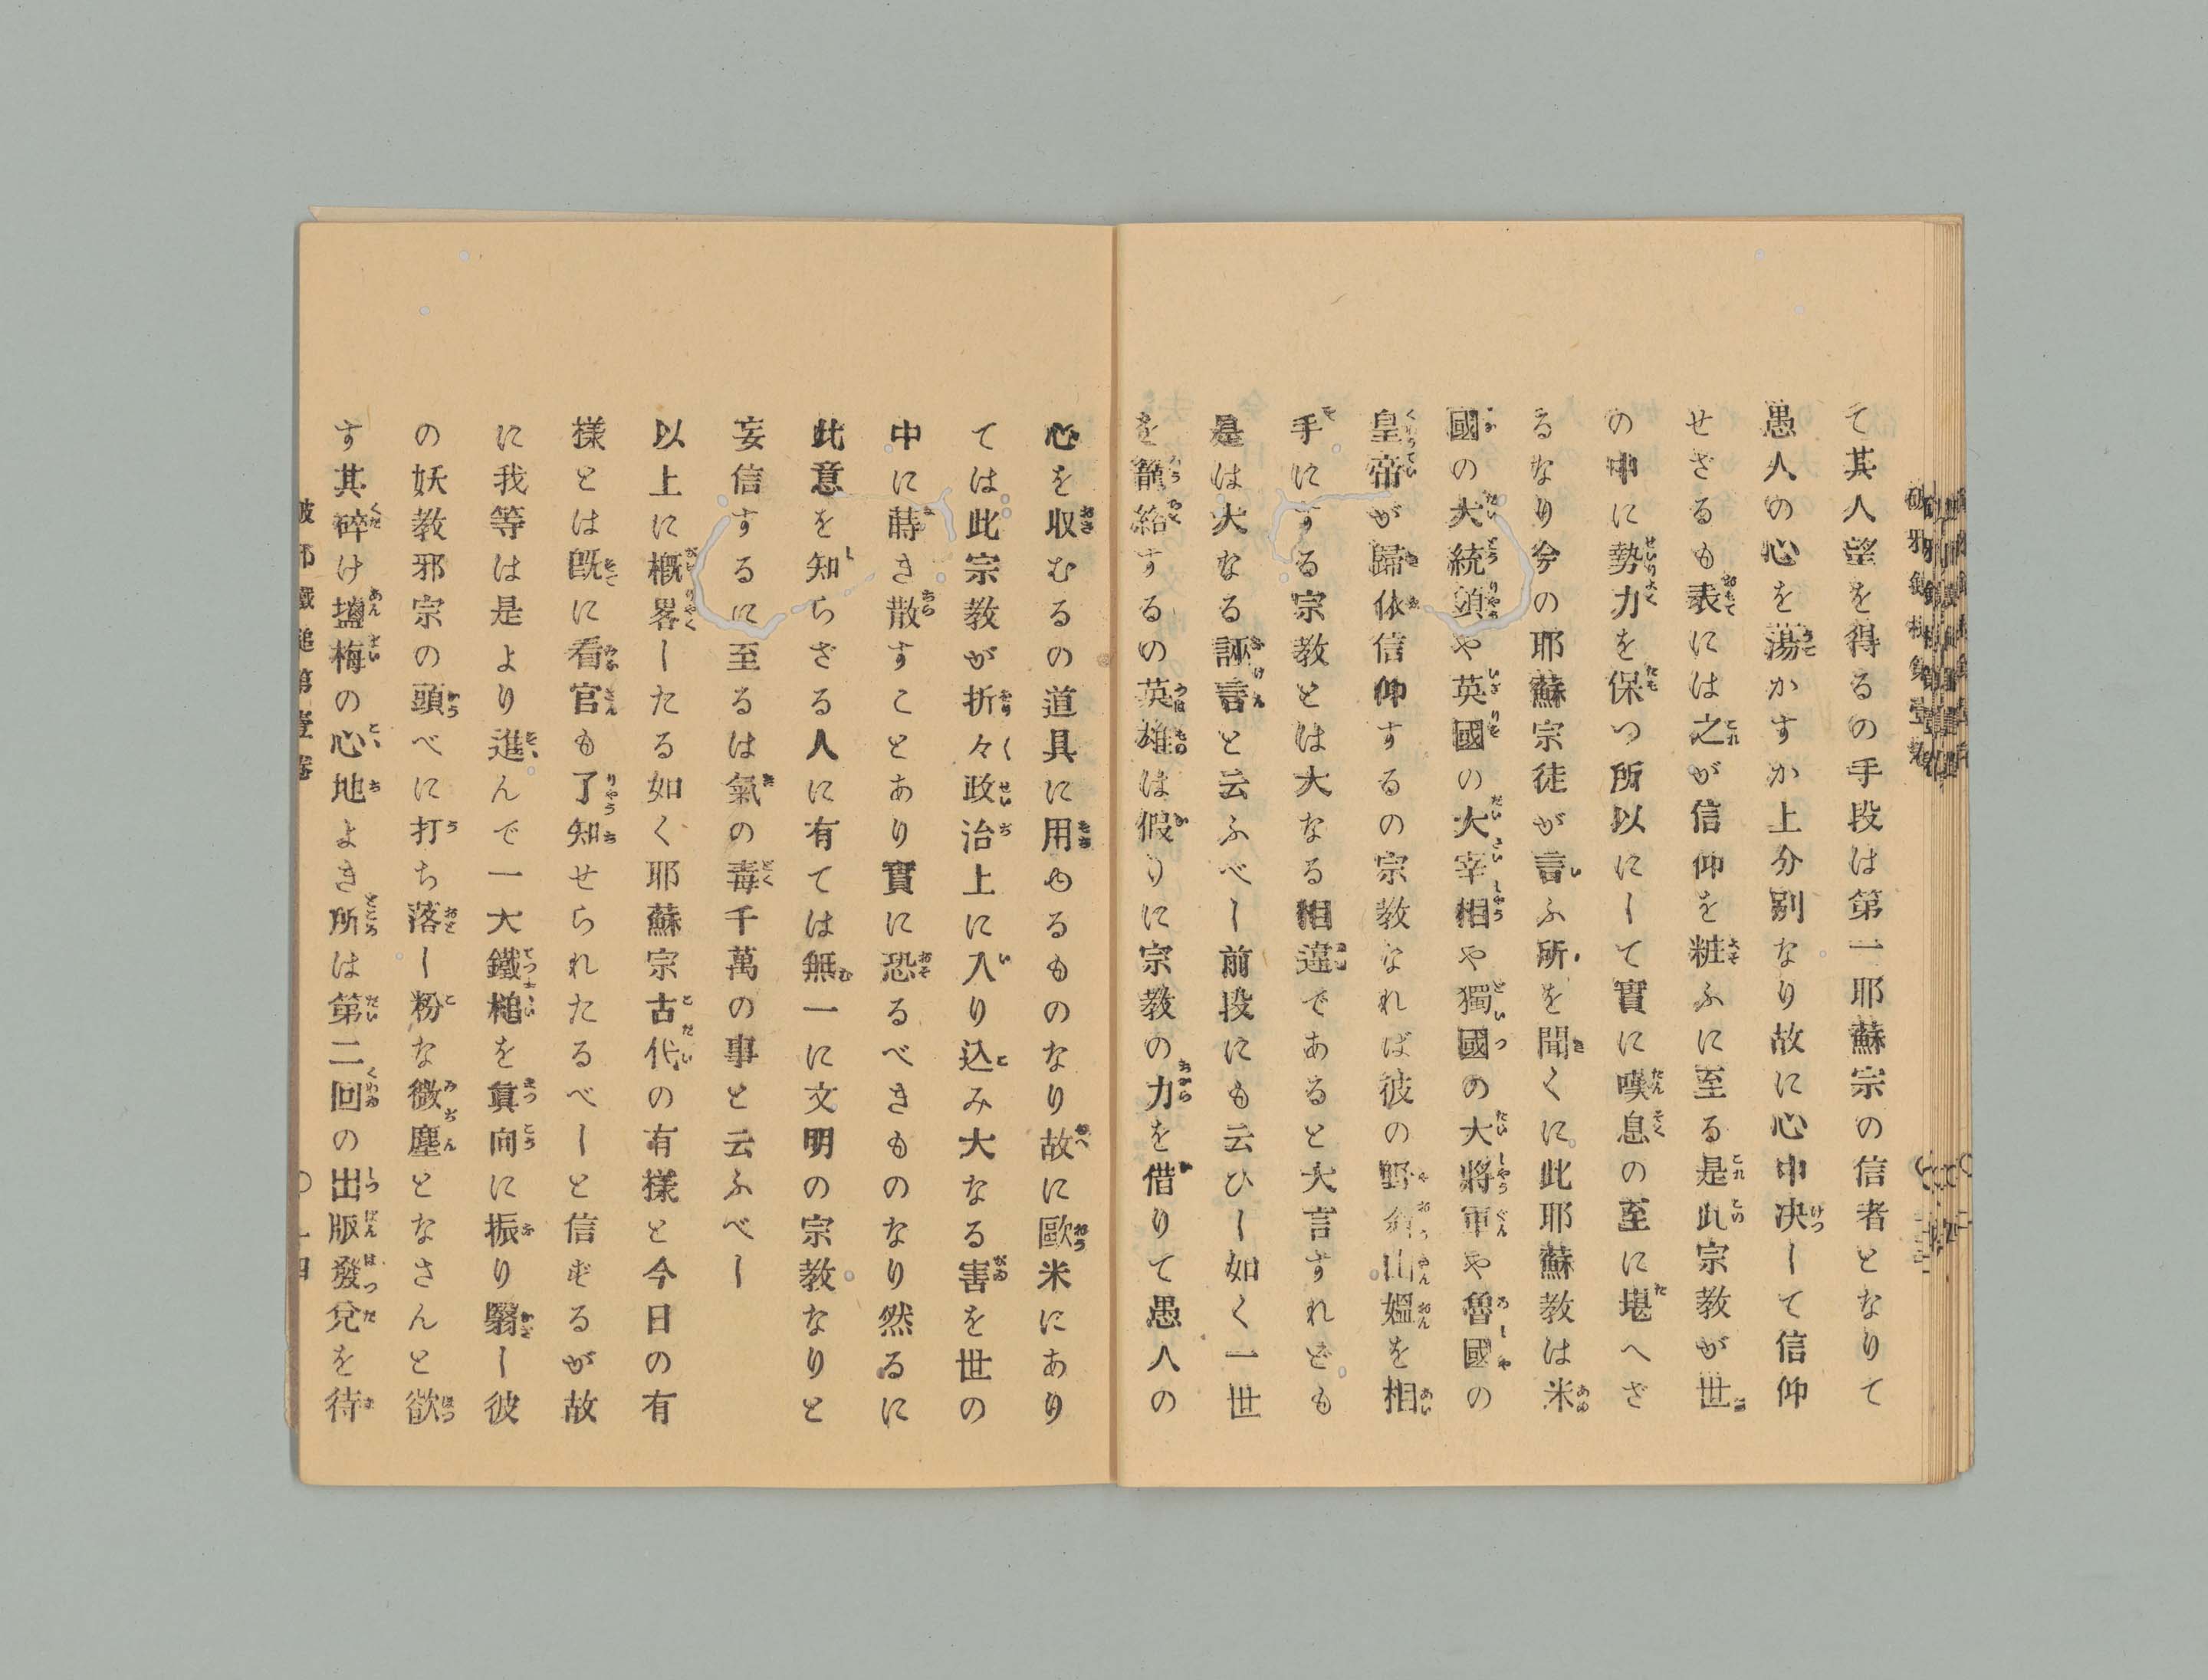 て其人望を得るの手段は第一耶蘇宗の信者となりて
愚人の心を蕩かすか上分別なり故に心中决して信仰
せざるも表には之が信仰を粧ふに至る是此宗教が世
の中に勢力を保つ所以にして實に嘆息の至に堪へざ
るなり今の耶蘇宗徒が言ふ所を聞くに此耶蘇教は米
國の大統領や英國の大宰相や獨國の大將軍や魯國の
皇帝が歸依信仰するの宗教なれば彼の野翁山媼を相
手にする宗教とは大なる相違であると大言すれども
是は大なる誣言と云ふべし前段にも云ひし如く一世
を籠絡するの英雄は假りに宗教の力を借りて愚人の
心を収むるの道具に用ゐるものなり故に歐米にあり
ては此宗教が折々政治上に入り込み大なる害を世の
中に蒔き散すことあり實に恐るべきものなり然るに
此意を知らざる人に有ては無一に文明の宗教なりと
妄信するに至るは氣の毒千萬の事と云ふべし
以上に概畧したる如く耶蘇宗古代の有様と今日の有
様とは既に看官も了知せられたるべしと信ずるが故
に我等は是より進んで一大鐵槌を眞向に振り翳し彼
の妖教邪宗の頭べに打ち落し粉な微塵となさんと欲
す其碎け塩梅の心地よき所は第二回の出版發兌を待
破邪鐵槌第壹卷 〇十四